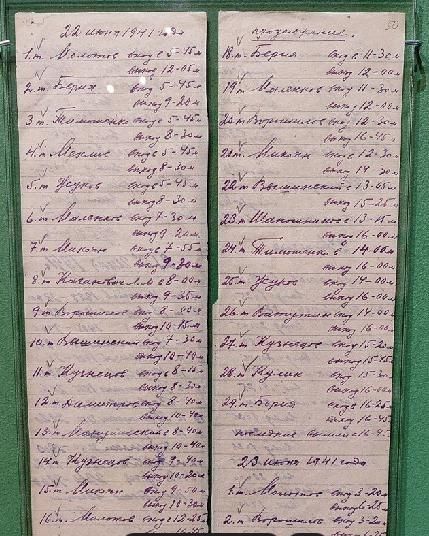 22 июня 1941 года
1. т. Молотов вход в 5-45 м
выход 12-05 м
2. т. Берия вход 5-45 м
выход 9-20 м
3. т. Тимошенко вход в 5-45 м
выход 8-30 м
4. т. Мехлис вход в 5-45 м
выход 8-30 м
5. т. Жуков вход 5-45 м
выход 8-30 м
6. т. Маленков вход 7-30 м
выход 9-20 м
7. т. Микоян вход в 7-55 м
выход 9-30 м
8. т. Каганович Л.М. в 8-00 м
выход 9-35 м
9. т. Ворошилов вход 8-00 м
выход 10-15 м
10. т. Вышинский вход 7-30 м
выход 10-40 м
11. т. Кузнецов вход в 8-15 м
выход 8-30 м
12. т. Димитров вход 8-40 м
выход 10-40 м
13. т. Мануильский в 8-40 м
выход 10-40 м
14. т. Кузнецов вход 9-40 м
выход 10-20 м
15. т. Микоян вход 9-50 м
выход 10-30 м
16. т. Молотов вход в 12-25 м
50
продолжение
18. т. Берия вход в 11-30 м
выход 12-00 м
19. т. Маленков вход 11-30 м
выход 12-00 м
20. т. Ворошилов вход 12-30 м
выход 16-45 м
21. т. Микоян вход в 12-30 м
выход 14-30 м
22. т. Вышинский в 13-05 м
выход 15-25 м
23. т. Шапошников в 13-15 м
выход 16-00 м
24. т. Тимошенко в 14-00 м
выход 16-00 м
25. т. Жуков вход 14-00 м
выход 16-00 м
26. т. Ватутин вход 14-00 м
выход 16-00 м
27. т. Кузнецов вход 15-20 м
выход 15-45 м
28. т. Кулик вход 15-30 м
выход 16-00 м
29. т. Берия вход в 16-25 м
выход 16-45 м
последние вышли в 16-45
23 июня 1941 года
1. т. Молотов вход 3-20 м
выход 6-25 м
2. т. Ворошилов вход 3-20 м